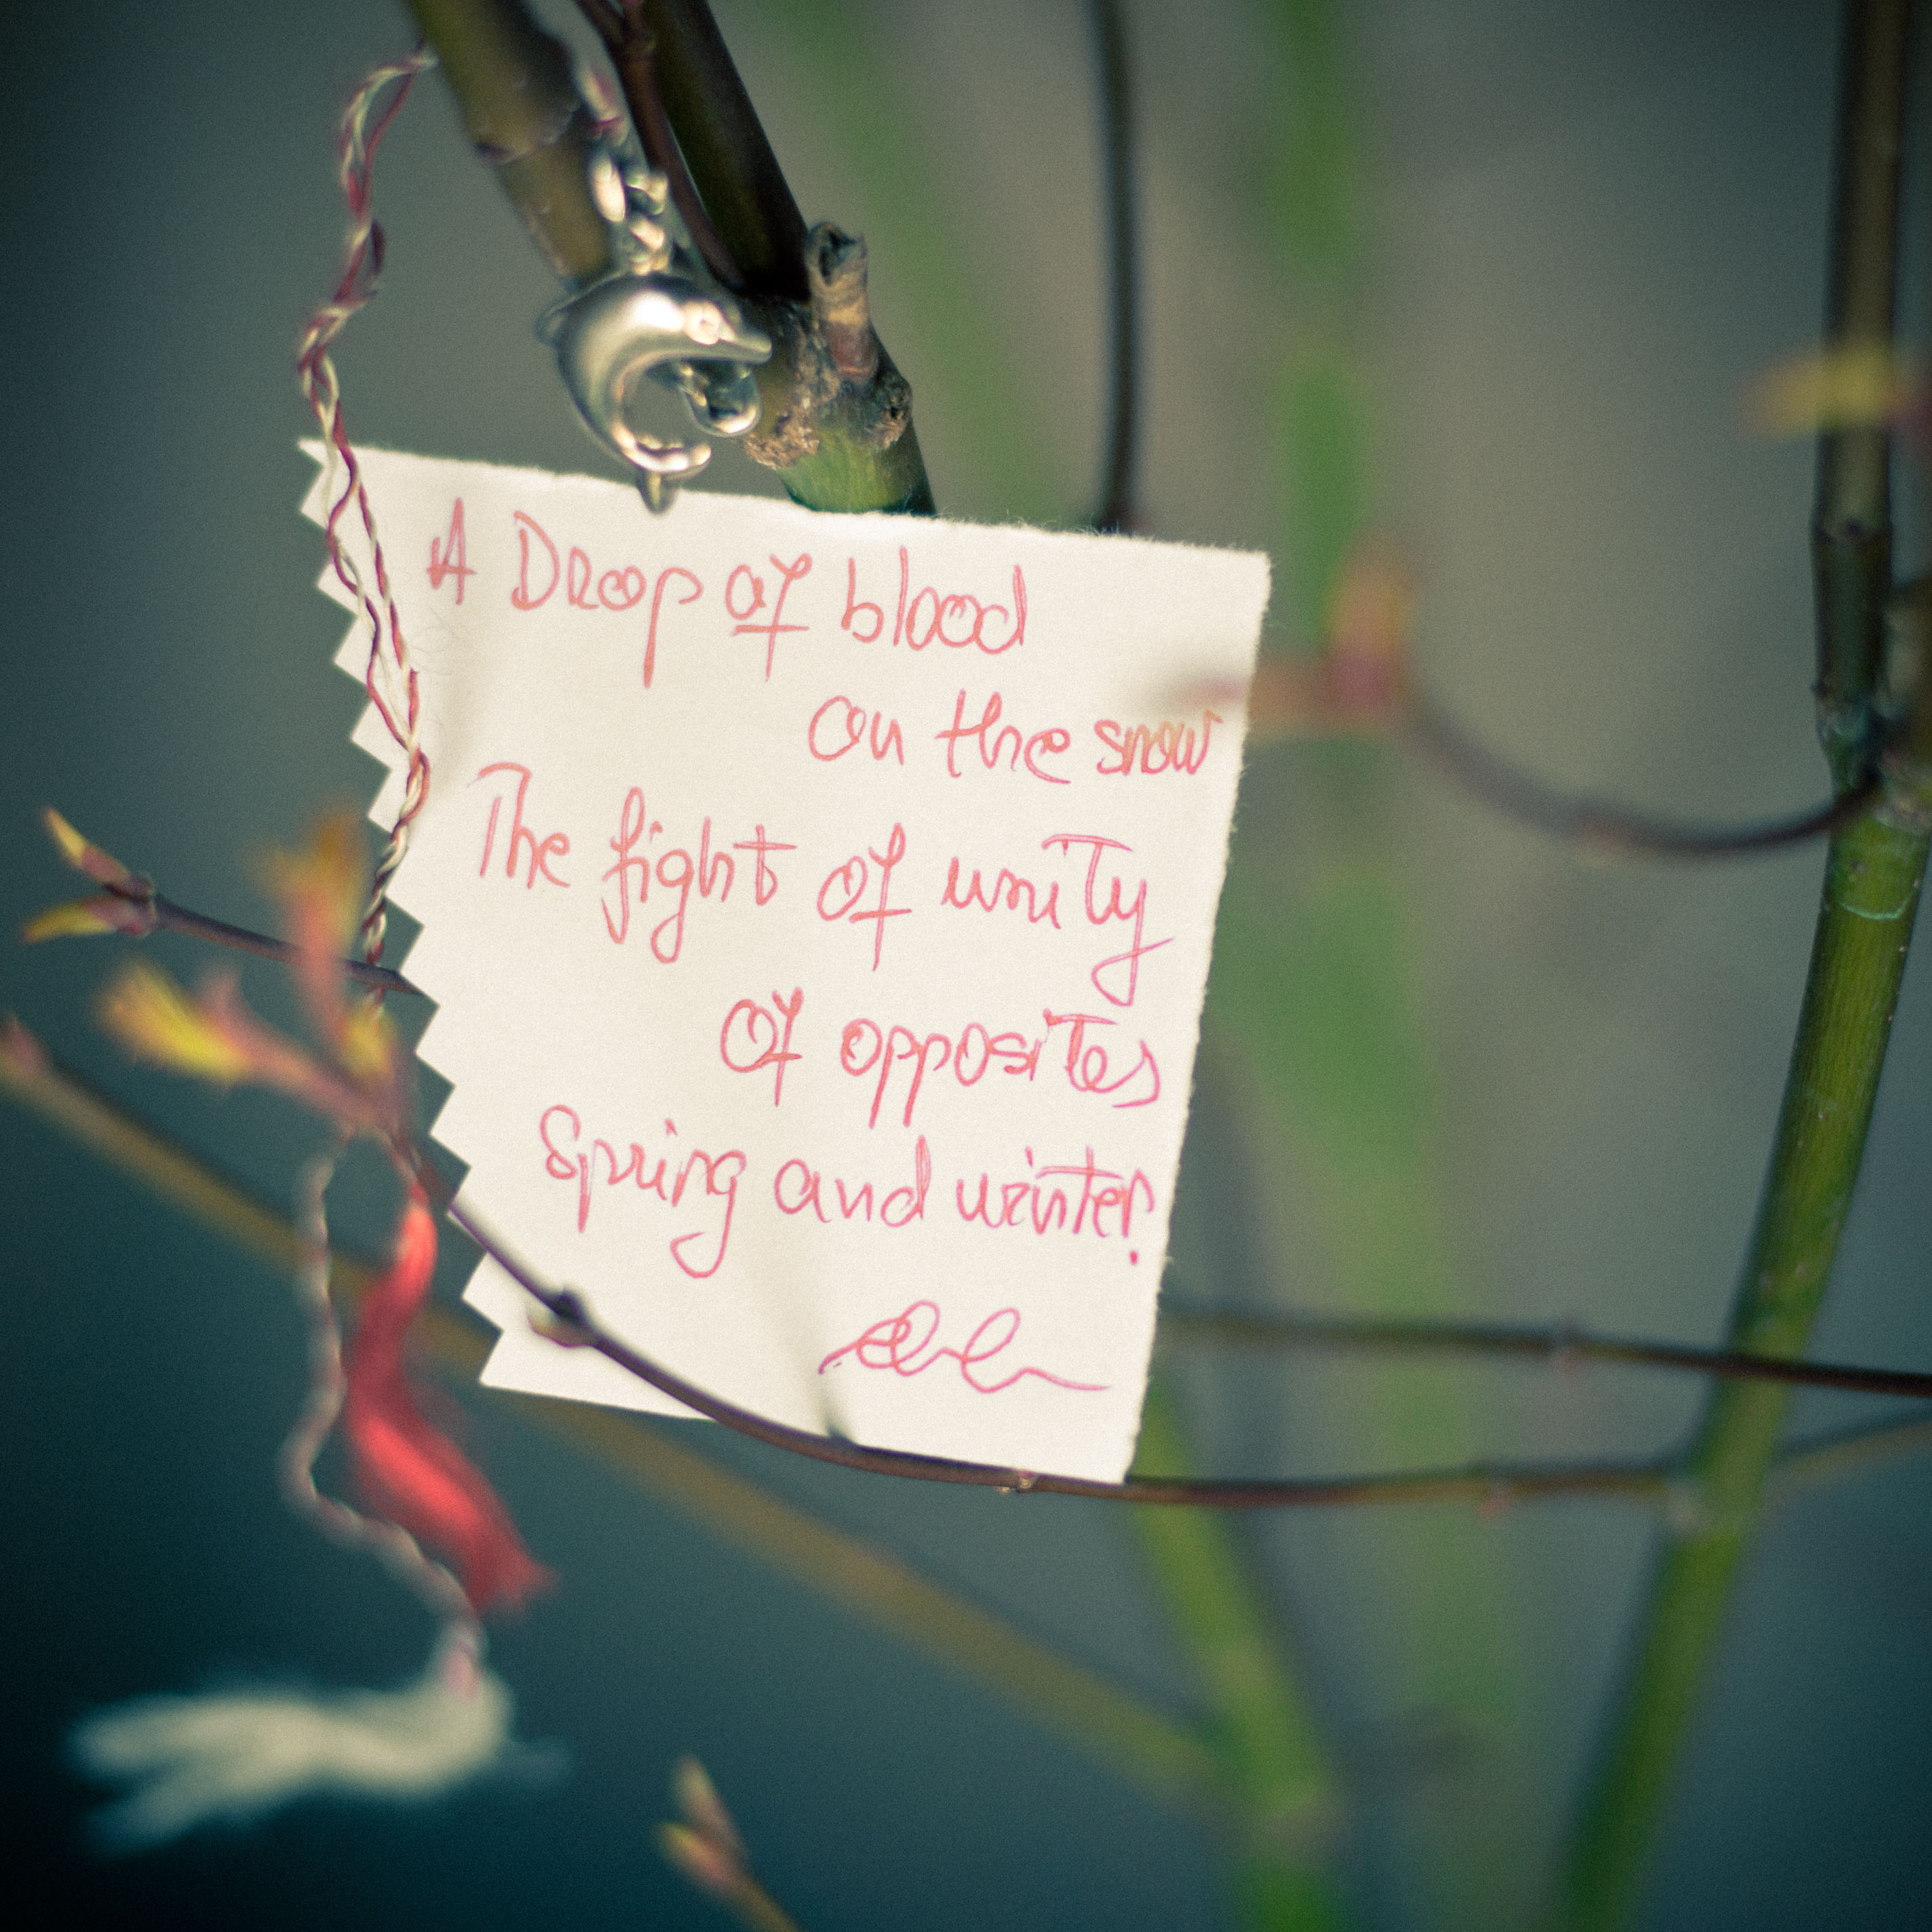 A Drop of blood
on the snow
The fight of unity
of opposites
Spring and winter.